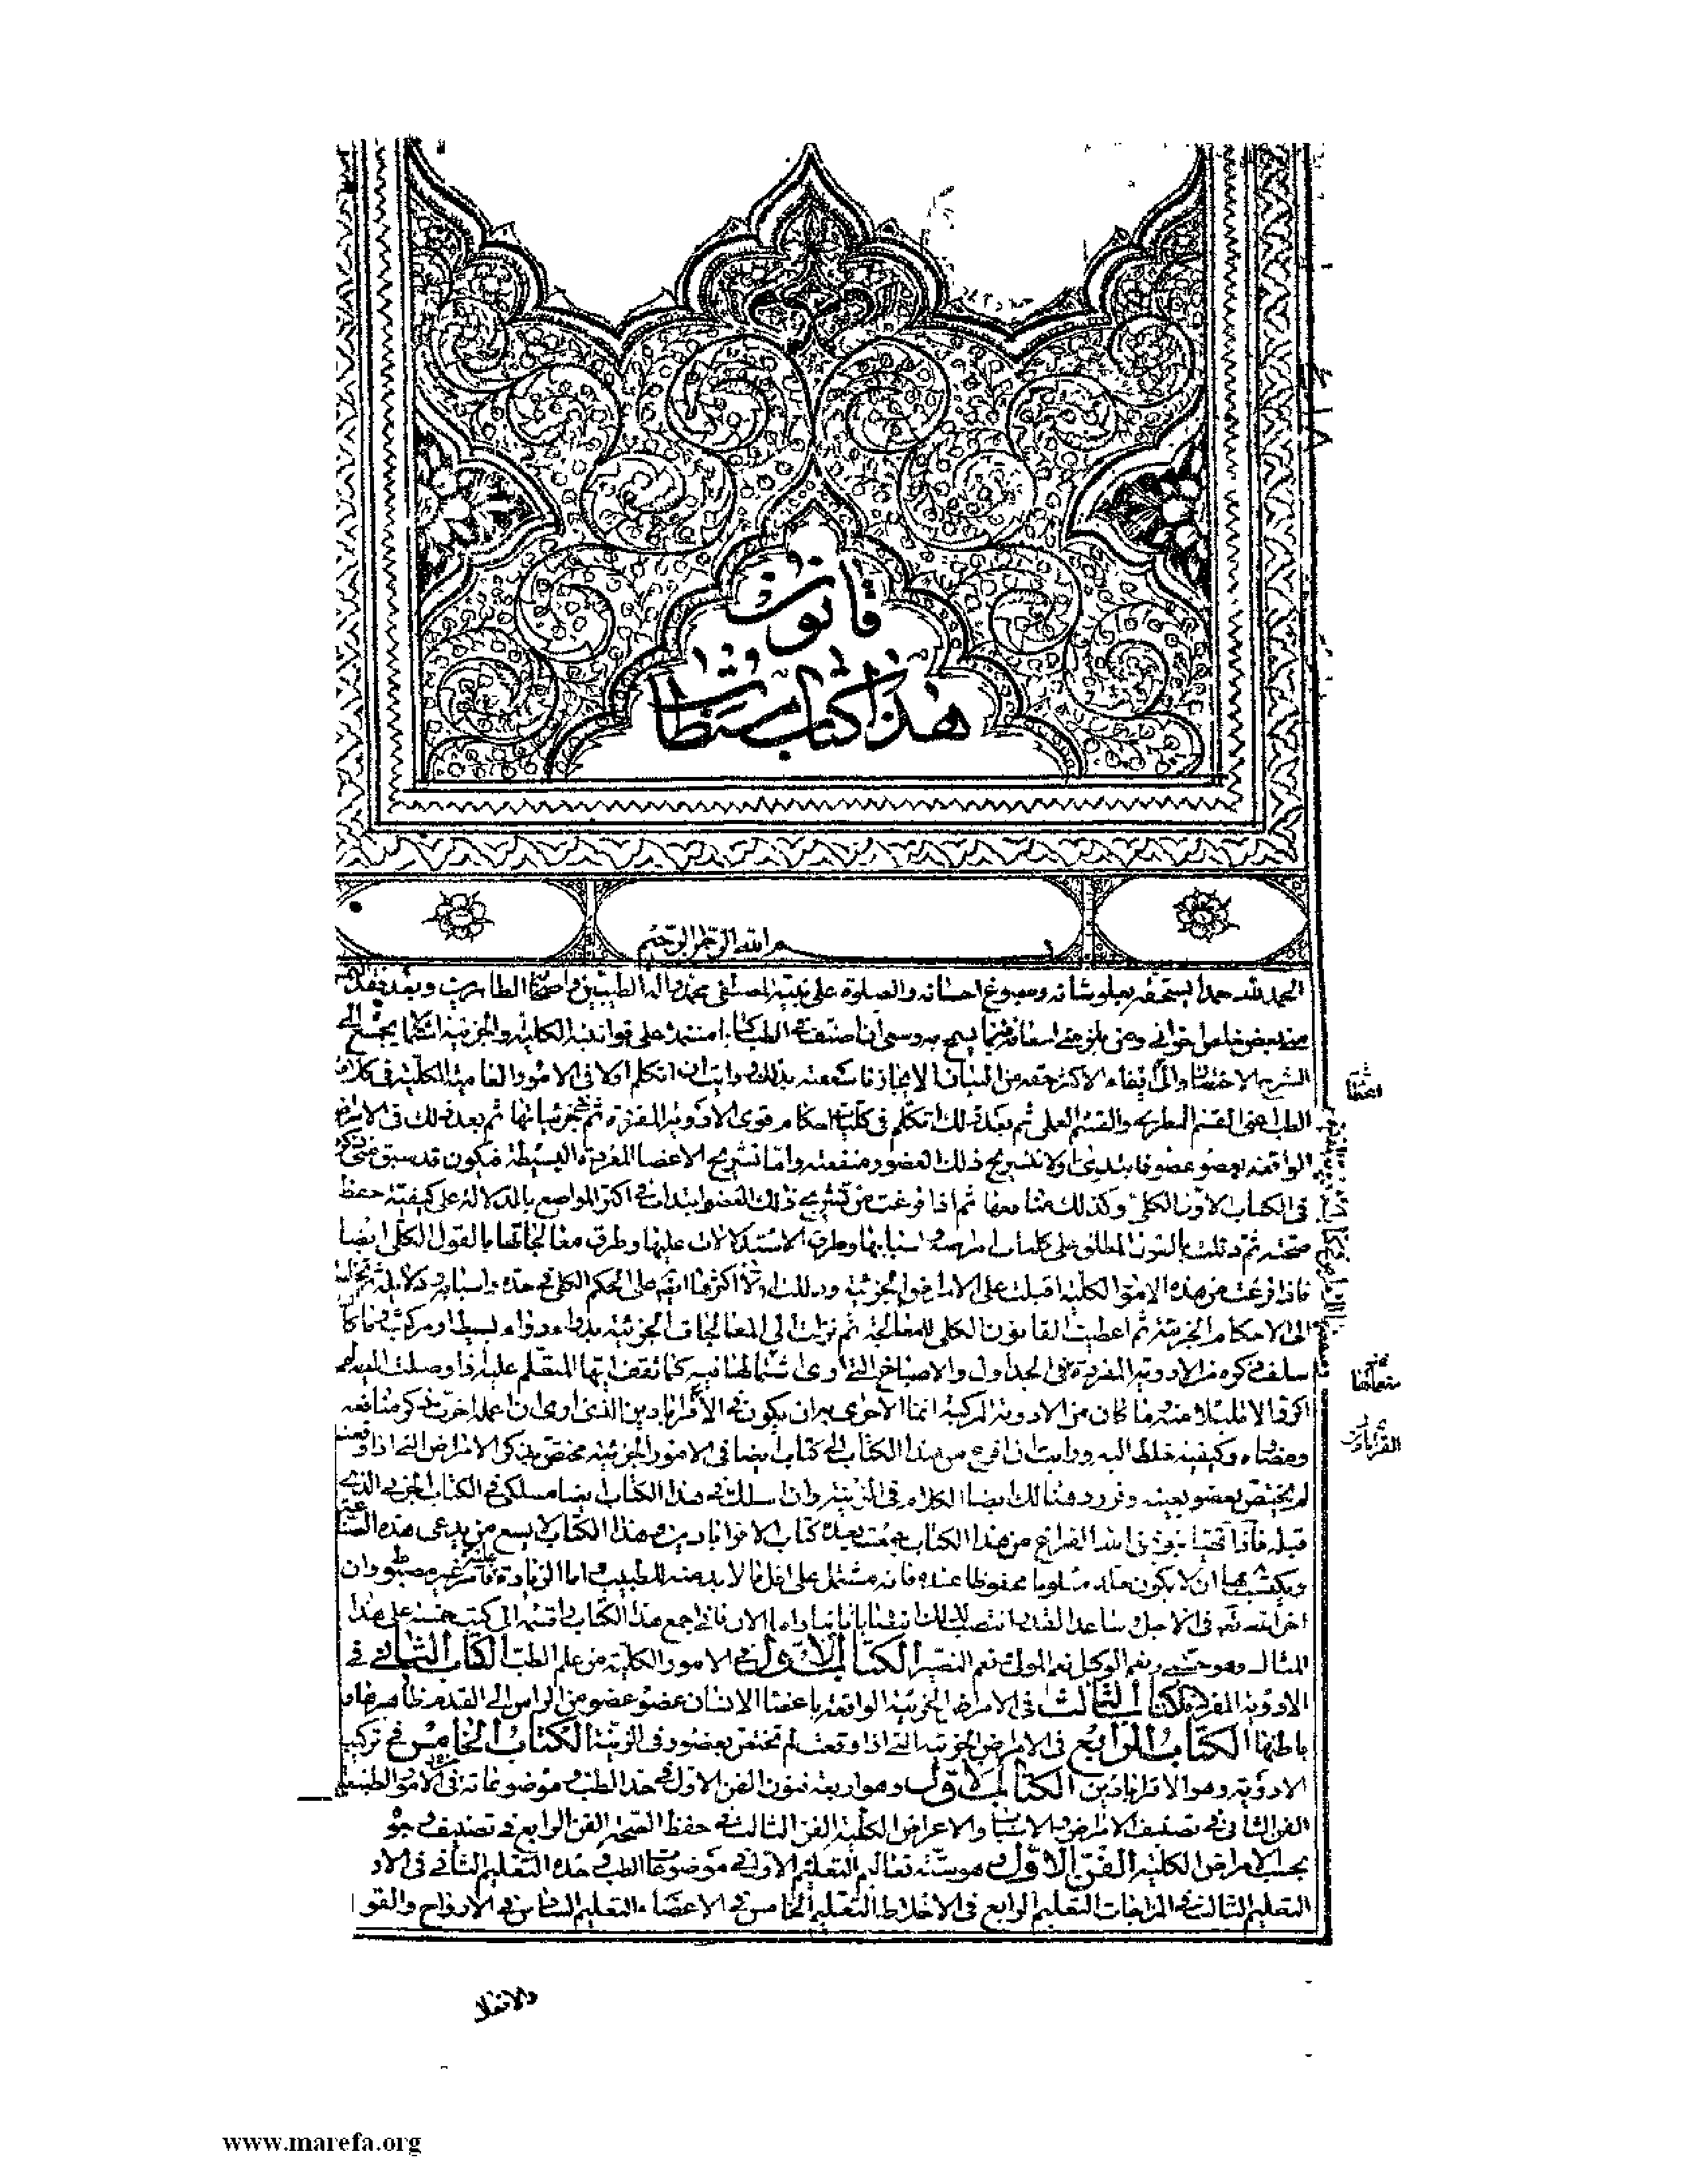 قانون
هذا كتاب مستطاب
الله الرحمن الرحيم
الحمد لله حمدا يستحقه بعلو شانه وسبوغ احسانه والصلوة على نبيه المصطفى محمد واله الطيبين واصحابه الطاهرين وبعد فقد
من بعض خلص اخواني ومن يلزمني اسعافه فيما يسمح به وسعي ان اصنف في الطب كتابا مشتملا على قوانينه الكلية والجزئية اشتمالا يجمع الى
الشرح الاختصار والى ايفاء الاكثر حقه من البيان الايجاز فاسعفته بذلك ورايت ان اتكلم اولا في الامور العامية الكلية في كلا
الطب اعني القسم النظري والقسم العملي ثم بعد ذلك اتكلم في كليات احكام قوى الادوية المفردة ثم في جزئياتها ثم بعد ذلك في الامراض
الواقعة بعضو عضو فابتدئ اولا بتشريح ذلك العضو ومنفعته واما تشريح الاعضا المفردة البسيطة فيكون قد سبق مني
في الكتاب الاول الكلي وكذلك منافعها ثم اذا فرغت من تشريح ذلك العضو ابتدات في اكثر المواضع بالدلالة على كيفية حفظ
صحته ثم دللت بالقول المطلق على كليات امراضه واسبابها وطرق الاستدلالات عليها وطرق معالجاتها بالقول الكلي ايضا
فاذا فرغت من هذه الامور الكلية اقبلت على الامراض الجزئية ودللت اولا في اكثرها ايضا على الحكم الكلي في حده واسبابه ودلائله ثم تخلصت
الى الاحكام الجزئية ثم اعطيت القانون الكلي للمعالجة ثم نزلت الى المعالجات الجزئية بدواء دواء بسيط او مركب وما كا
سلف ذكره من الادوية المفردة في الجداول والاصباغ التي ارى استعمالها فيه كما تقف ايها المتعلم عليه اذا وصلت اليه لم
اكرر الا قليلا منه وما كان من الادوية المركبة انما الاحرى به ان يكون في الاقراباذين الذي ارى ان اعمله اخرت ذكر منافعه
وكيفية خلطه اليه ورايت ان افرغ من هذا الكتاب الى كتاب ايضا في الامور الجزئية مختص بذكر الامراض التي اذا وقعت
لم يختص بعضو بعينه ونورد هنالك ايضا الكلام في الزينة وان اسلك في هذا الكتاب ايضا مسلكي في الكتاب الجزئي الذي
قبله فاذا تهيا بتوفيق الله الفراغ من هذا الكتاب جمعت بعده كتاب الاقراباذين وهذا الكتاب لا يسع من يدعي هذه الصناعة
ويكتسب بها ان لا يكون جله معلوما محفوظا عنده فانه مشتمل على اقل ما لا بد منه للطبيب اما الزيادة عليه فامر غير مضبوط وان
اخر الله تع في الاجل وساعد القدر انتصبت لذلك انتصابا ثانيا واما الان فاني اجمع هذا الكتاب واقسمه الى كتب خمسة على هذا
المثال وهو حسبي ونعم الوكيل نعم المولى ونعم النصير الكتاب الاول في الامور الكلية من علم الطب الكتاب الثاني في
الادوية المفردة الكتاب الثالث في الامراض الجزئية الواقعة باعضا الانسان عضو عضو من الراس الى القدم ظاهرها و
باطنها الكتاب الرابع في الامراض الجزئية التي اذا وقعت لم تختص بعضو وفي الزينة الكتاب الخامس في تركيب
الادوية وهو الاقراباذين الكتاب الاول وهو اربعة فنون الفن الاول في حد الطب وموضوعاته في الامور الطبيعية
الفن الثاني في تصنيف الامراض والاسباب والاعراض الكلية الفن الثالث في حفظ الصحة الفن الرابع في تصنيف وجو
بحسب الامراض الكلية الفن الاول وهو ستة تعاليم التعليم الاول في موضوعات الطب وحده التعليم الثاني في الار
التعليم الثالث في المزاجات التعليم الرابع في الاخلاط التعليم الخامس في الاعضاء التعليم السادس في الارواح والقوا
والافعال
www.marefa.org